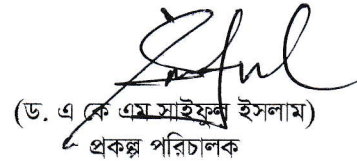 (ড. এ কে এম সাইফুল ইসলাম)
প্রকল্প পরিচালক